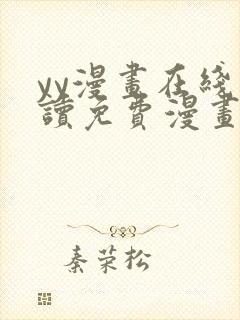 yy漫畫在綫
讀免費漫畫
秦荣松